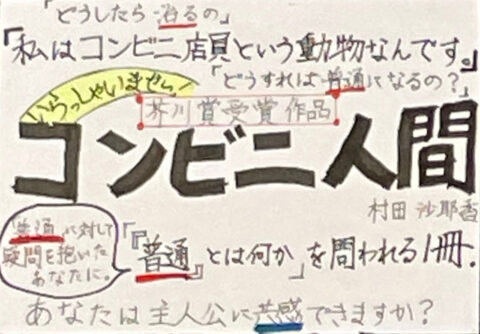 「どうしたら治るの」
「私はコンビニ店員という動物なんです。」
「どうすれば普通になるの？」
いらっしゃいませ！
芥川賞受賞作品
コンビニ人間
村田 沙耶香
普通に対して
疑問を抱いた
あなたに。
「『普通』とは何か」を問われる1冊.
あなたは主人公に共感できますか？